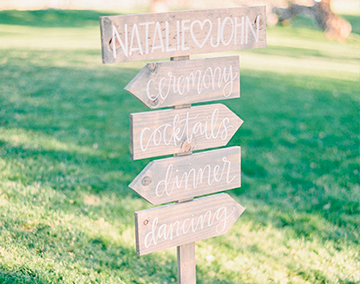 NATALIE♡JOHN
ceremony
cocktails
dinner
dancing